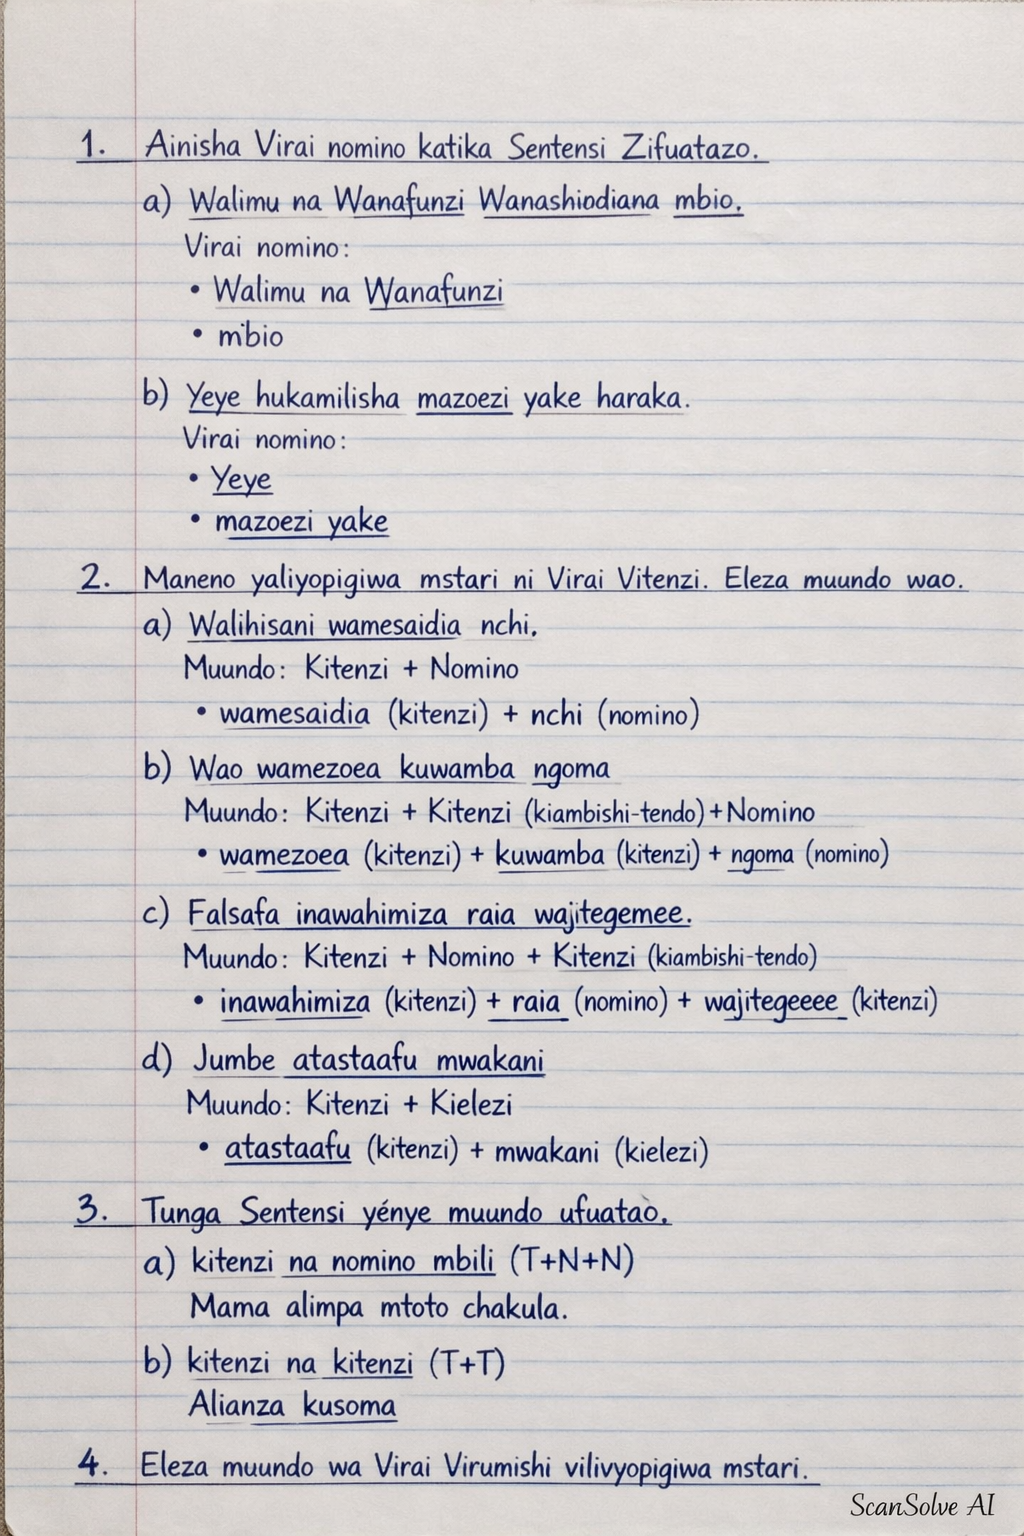 1. Ainisha Virai nomino katika Sentensi Zifuatazo.
a) Walimu na Wanafunzi Wanashindiana mbio.
Virai nomino:
• Walimu na Wanafunzi
• mbio
b) Yeye hukamilisha mazoezi yake haraka.
Virai nomino:
• Yeye
• mazoezi yake
2. Maneno yaliyopigiwa mstari ni Virai Vitenzi. Eleza muundo wao.
a) Walihisani wamesaidia nchi.
Muundo: Kitenzi + Nomino
• wamesaidia (kitenzi) + nchi (nomino)
b) Wao wamezoea kuwamba ngoma
Muundo: Kitenzi + Kitenzi (kiambishi-tendo) + Nomino
• wamezoea (kitenzi) + kuwamba (kitenzi) + ngoma (nomino)
c) Falsafa inawahimiza raia wajitegemee.
Muundo: Kitenzi + Nomino + Kitenzi (kiambishi-tendo)
• inawahimiza (kitenzi) + raia (nomino) + wajitegeeee (kitenzi)
d) Jumbe atastaafu mwakani
Muundo: Kitenzi + Kielezi
• atastaafu (kitenzi) + mwakani (kielezi)
3. Tunga Sentensi yénye muundo ufuatao.
a) kitenzi na nomino mbili (T+N+N)
Mama alimpa mtoto chakula.
b) kitenzi na kitenzi (T+T)
Alianza kusoma
4. Eleza muundo wa Virai Virumishi vilivyopigiwa mstari.
ScanSolve AI